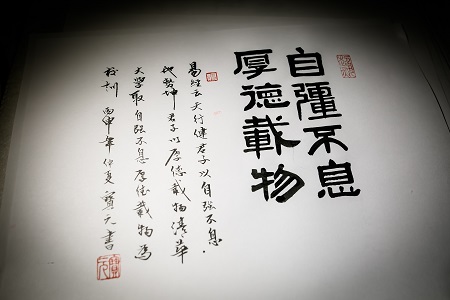 自彊不息
厚德載物
易經云天行健君子以自强不息.
地勢坤君子以厚德載物清華
大學取自强不息厚德載物為
校訓 丙申年仲夏寶元書